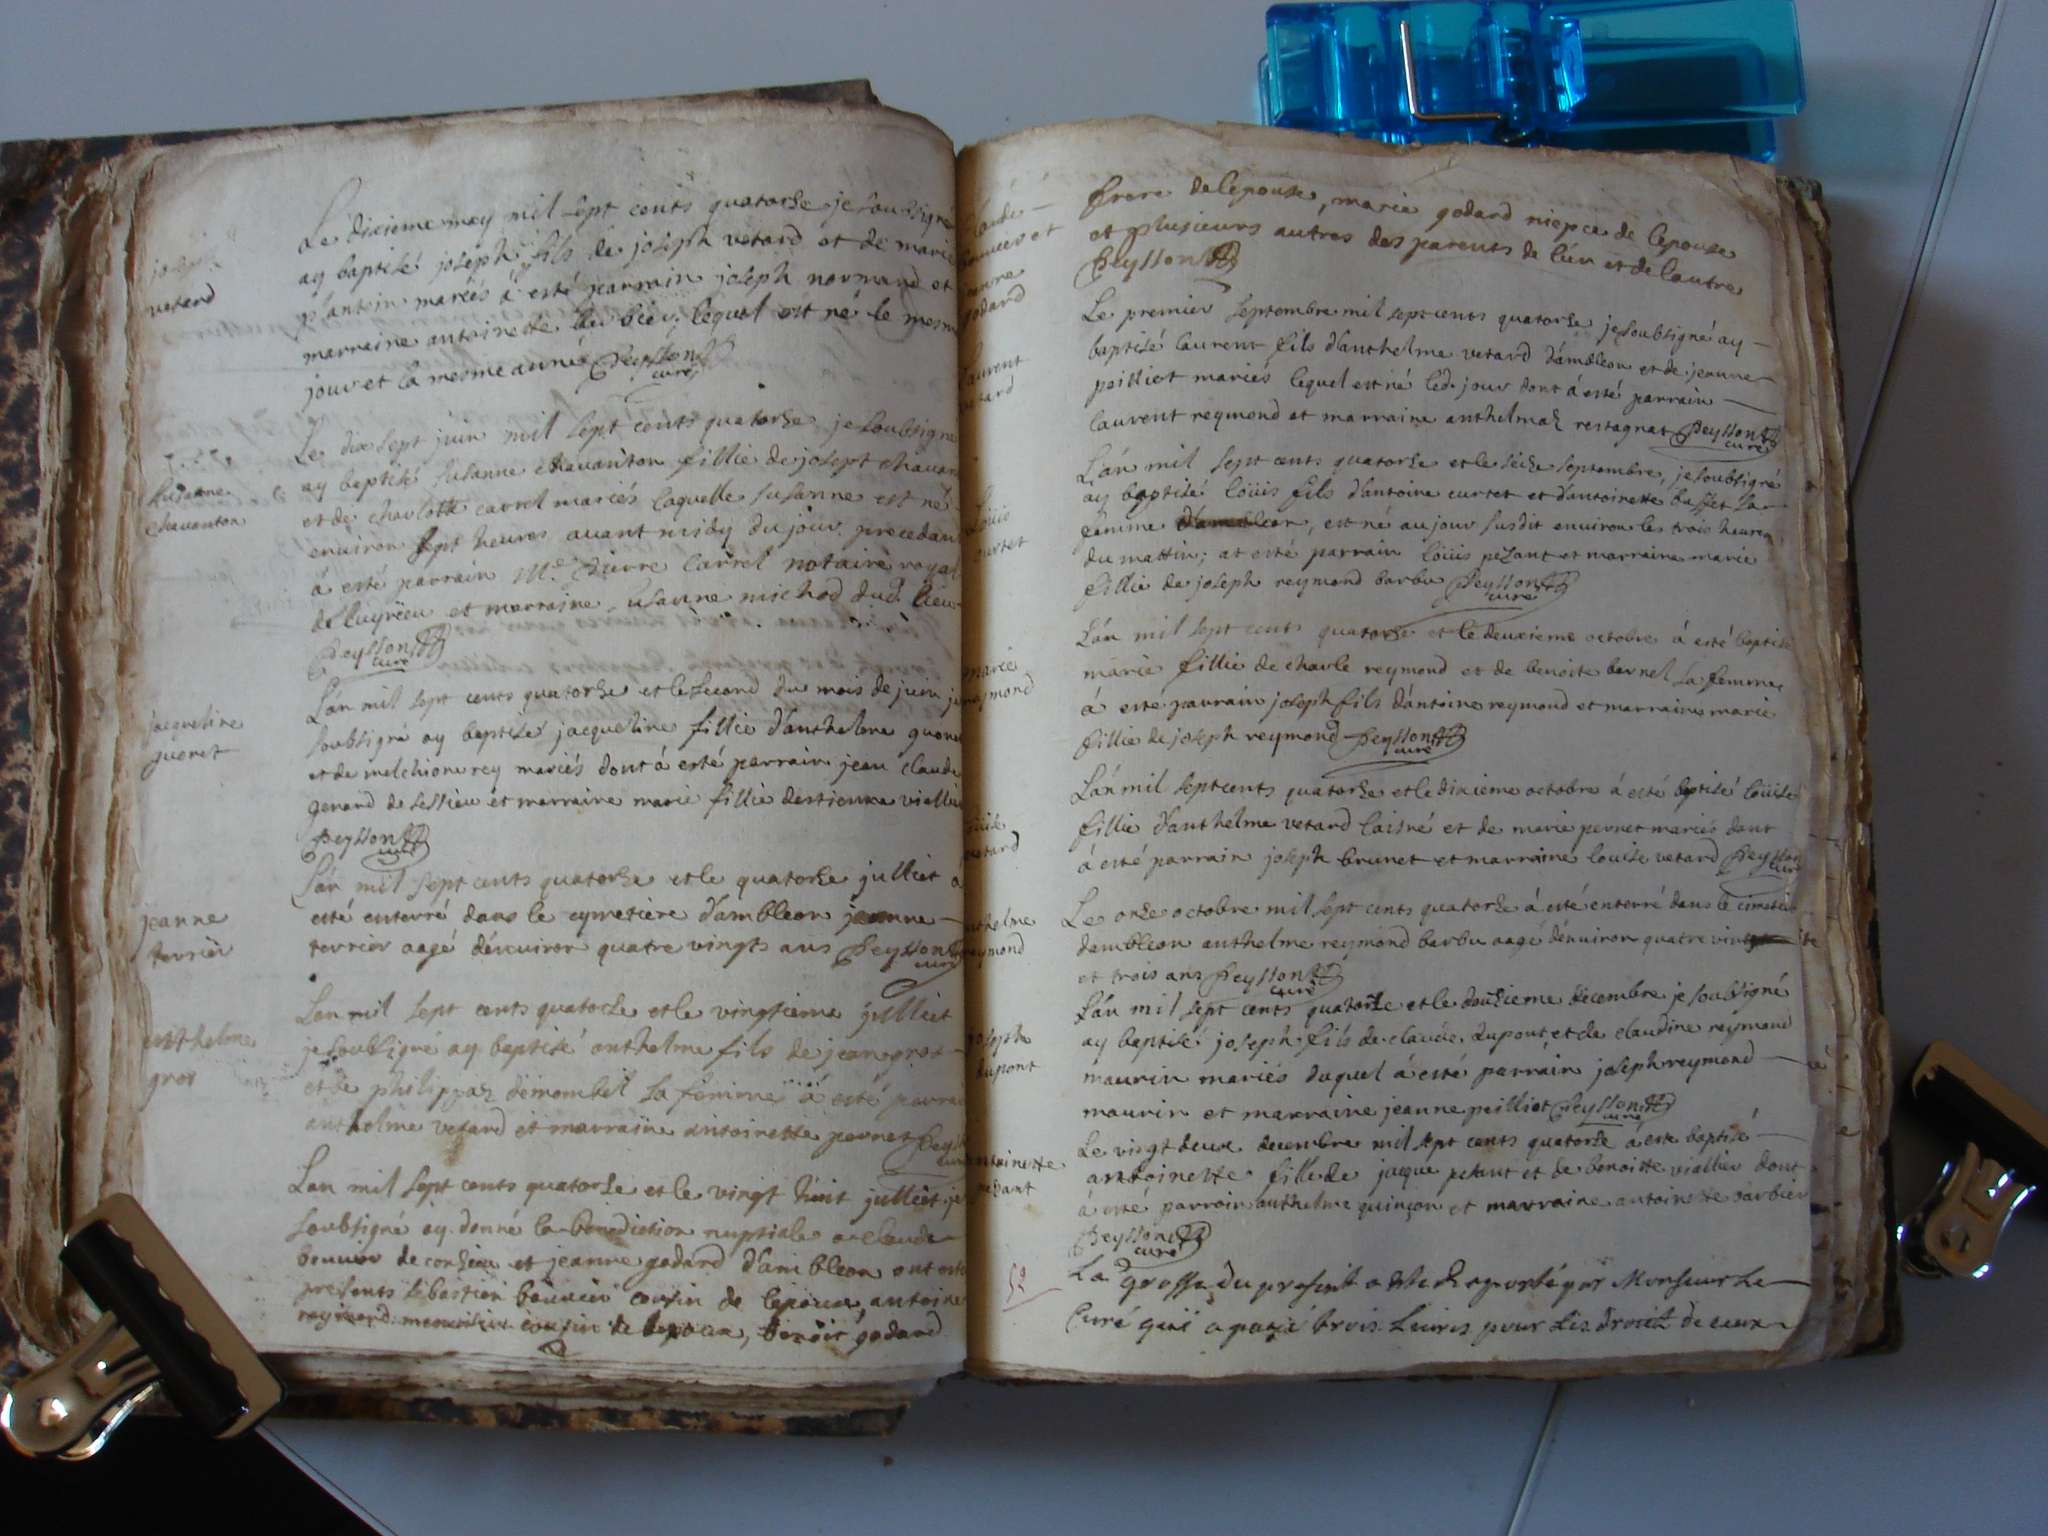 joseph
vetard
Le dixieme may mil sept cents quatorze je soubsigné
ay baptisé joseph fils de joseph vetard et de marie
pantoin mariés á esté parrain joseph normand et
marraine antoinette du biev, lequel est né le mesme
jour et la mesme année Peysson
curé
susanne
chavanton
Le dix sept juin mil sept cents quatorze je soubsigné
ay baptisé susanne chavanton fillie de josept chavan
et de charlotte carrel mariés laquelle susanne est né
environ sept heures avant midy du jour precedan
á esté parrain Me. Pierre Carrel notaire royal
de luyrieu et marraine susanne michod dud. lieu
Peysson
curé
jacqueline
guonet
Lán mil sept cents quatorze et le second du mois de juin je
soubsigné ay baptisé jacqueline fillie d'anthelme guonet
et de melchione rey mariés dont á esté parrain jean claude
genand de sessieu et marraine marie fillie destienne viallier
Peysson
curé
jeanne
terrier
Lán mil sept cents quatorze et le quatorze julliet a
esté enterré dans le cymetiere d'ambleon jeanne
terrier aagé dénviron quatre vingts ans Peysson
curé
anthelme
gros
Lan mil sept cents quatorze et le vingtieme julliet
je soubsigné ay baptisé anthelme fils de jean gros
et de philippaz demontel sa femme á esté parrai
anthelme vetard et marraine antoinette pernet Peys
curé
Lan mil sept cents quatorze et le vingt huit julliet je
soubsigné ay donné la benediction nuptiale a claude
bouvier de conzieu et jeanne godard d'ambleon ont esté
presents sebastien bouvier cousin de lepoux, antoine
reymond cousin de lepoux, benoit godard
claude
bouvier et
jeanne
godard
frere de lepouse, marie godard niepce de lepouse
et plusieurs autres des parents de lún et de lautre
Peysson
laurent
vetard
Le premier septembre mil sept cents quatorze je soubsigné ay
baptisé laurent fils d'anthelme vetard d'ambleon et de jeanne
peilliot mariés lequel est né led. jour dont á esté parrain
laurent reymond et marraine anthelmaz restagnat Peysson
curé
Loüis
curtet
Lán mil sept cents quatorze et le séize septembre, je soubsigné
ay baptisé loüis fils d'antoine curtet et d'antoinette baffet sa
femme d'ambleon, est né au jour susdit environ les trois heures
du mattin; at esté parrain loüis pezant et marraine marie
fillie de joseph reymond barbu Peysson
curé
marie
reymond
Lán mil sept cents quatorze et le deuxieme octobre á esté baptisé
marie fillie de charle reymond et de benoite bernel sa femme
á esté parrain joseph fils d'antoine reymond et marraine marie
fillie de joseph reymond Peysson
curé
loüise
vetard
Lán mil sept cents quatorze et le dixieme octobre á esté baptisé loüise
fillie d'anthelme vetard laisné et de marie pernet mariés dont
á esté parrain joseph brunet et marraine louise vetard Peysson
curé
anthelme
reymond
Le onze octobre mil sept cents quatorze á esté enterré dans le cimetiere
dambleon anthelme reymond barbu aagé denviron quatre vingt
et trois ans Peysson
curé
joseph
dupont
Lán mil sept cents quatorze et le douzieme decembre je soubsigné
ay baptisé joseph fils de claude dupont et de claudine reymond
maurin mariés duquel á esté parrain joseph reymond
maurin et marraine jeanne peilliot Peysson
curé
antoinette
pezant
Le vingt deux decembre mil sept cents quatorze á esté baptisé
antoinette fille de jacque petant et de benoitte viallier dont
á esté parrain anthelme quinçon et marraine antoinette barbier
Peysson
curé
La grosse du present a esté raporté par Monsieur le
Curé qui a payé trois livres pour les droits de ceux